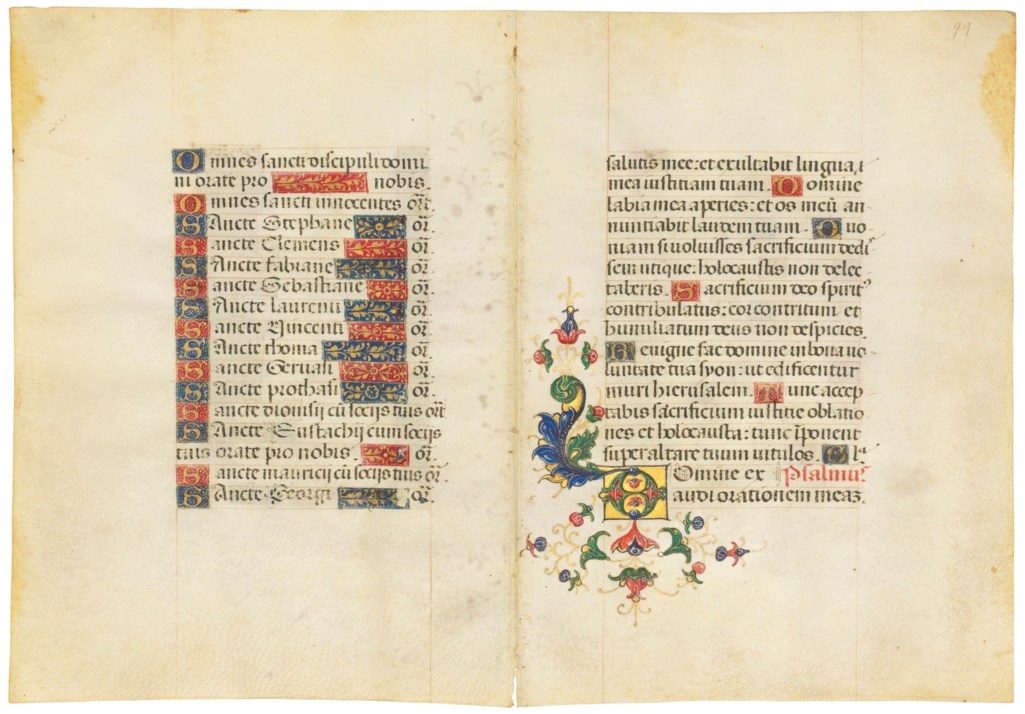 Omnes sancti discipuli domi
ni orate pro nobis.
Omnes sancti innocentes or̄t
SAncte Stephane or̄.
Sancte Clemens or̄.
SAncte fabiane or̄.
Sancte Sebastiane or̄.
SAncte Laurenti or̄.
Sancte Vincenti or̄.
SAncte thoma or̄.
Sancte Geruasi or̄.
SAncte prothasi or̄.
Sancte dionisij cū socijs tuis or̄t
SAncte Eustachij cum socijs
tuis orate pro nobis.
Sancte mauricij cū socijs tuis or̄.
SAncte Georgi or̄.
99
salutis mee: et exultabit lingua
mea iustitiam tuam. Domine
labia mea aperies: et os meū an
nuntiabit laudem tuam. Quo
niam si voluisses sacrificium dedis
sem utique: holocaustis non delec
taberis. Sacrificium deo spiritꝰ
contribulatus: cor contritum et
humiliatum deus non despicies.
Benigne fac domine in bona uo
luntate tua syon: ut edificentur
muri hierusalem. Tunc accep
tabis sacrificium iustitie oblatio
nes et holocausta: tunc īponent
super altare tuum vitulos. Gl'a
Domine ex Psalmus
audi orationem meaꝫ